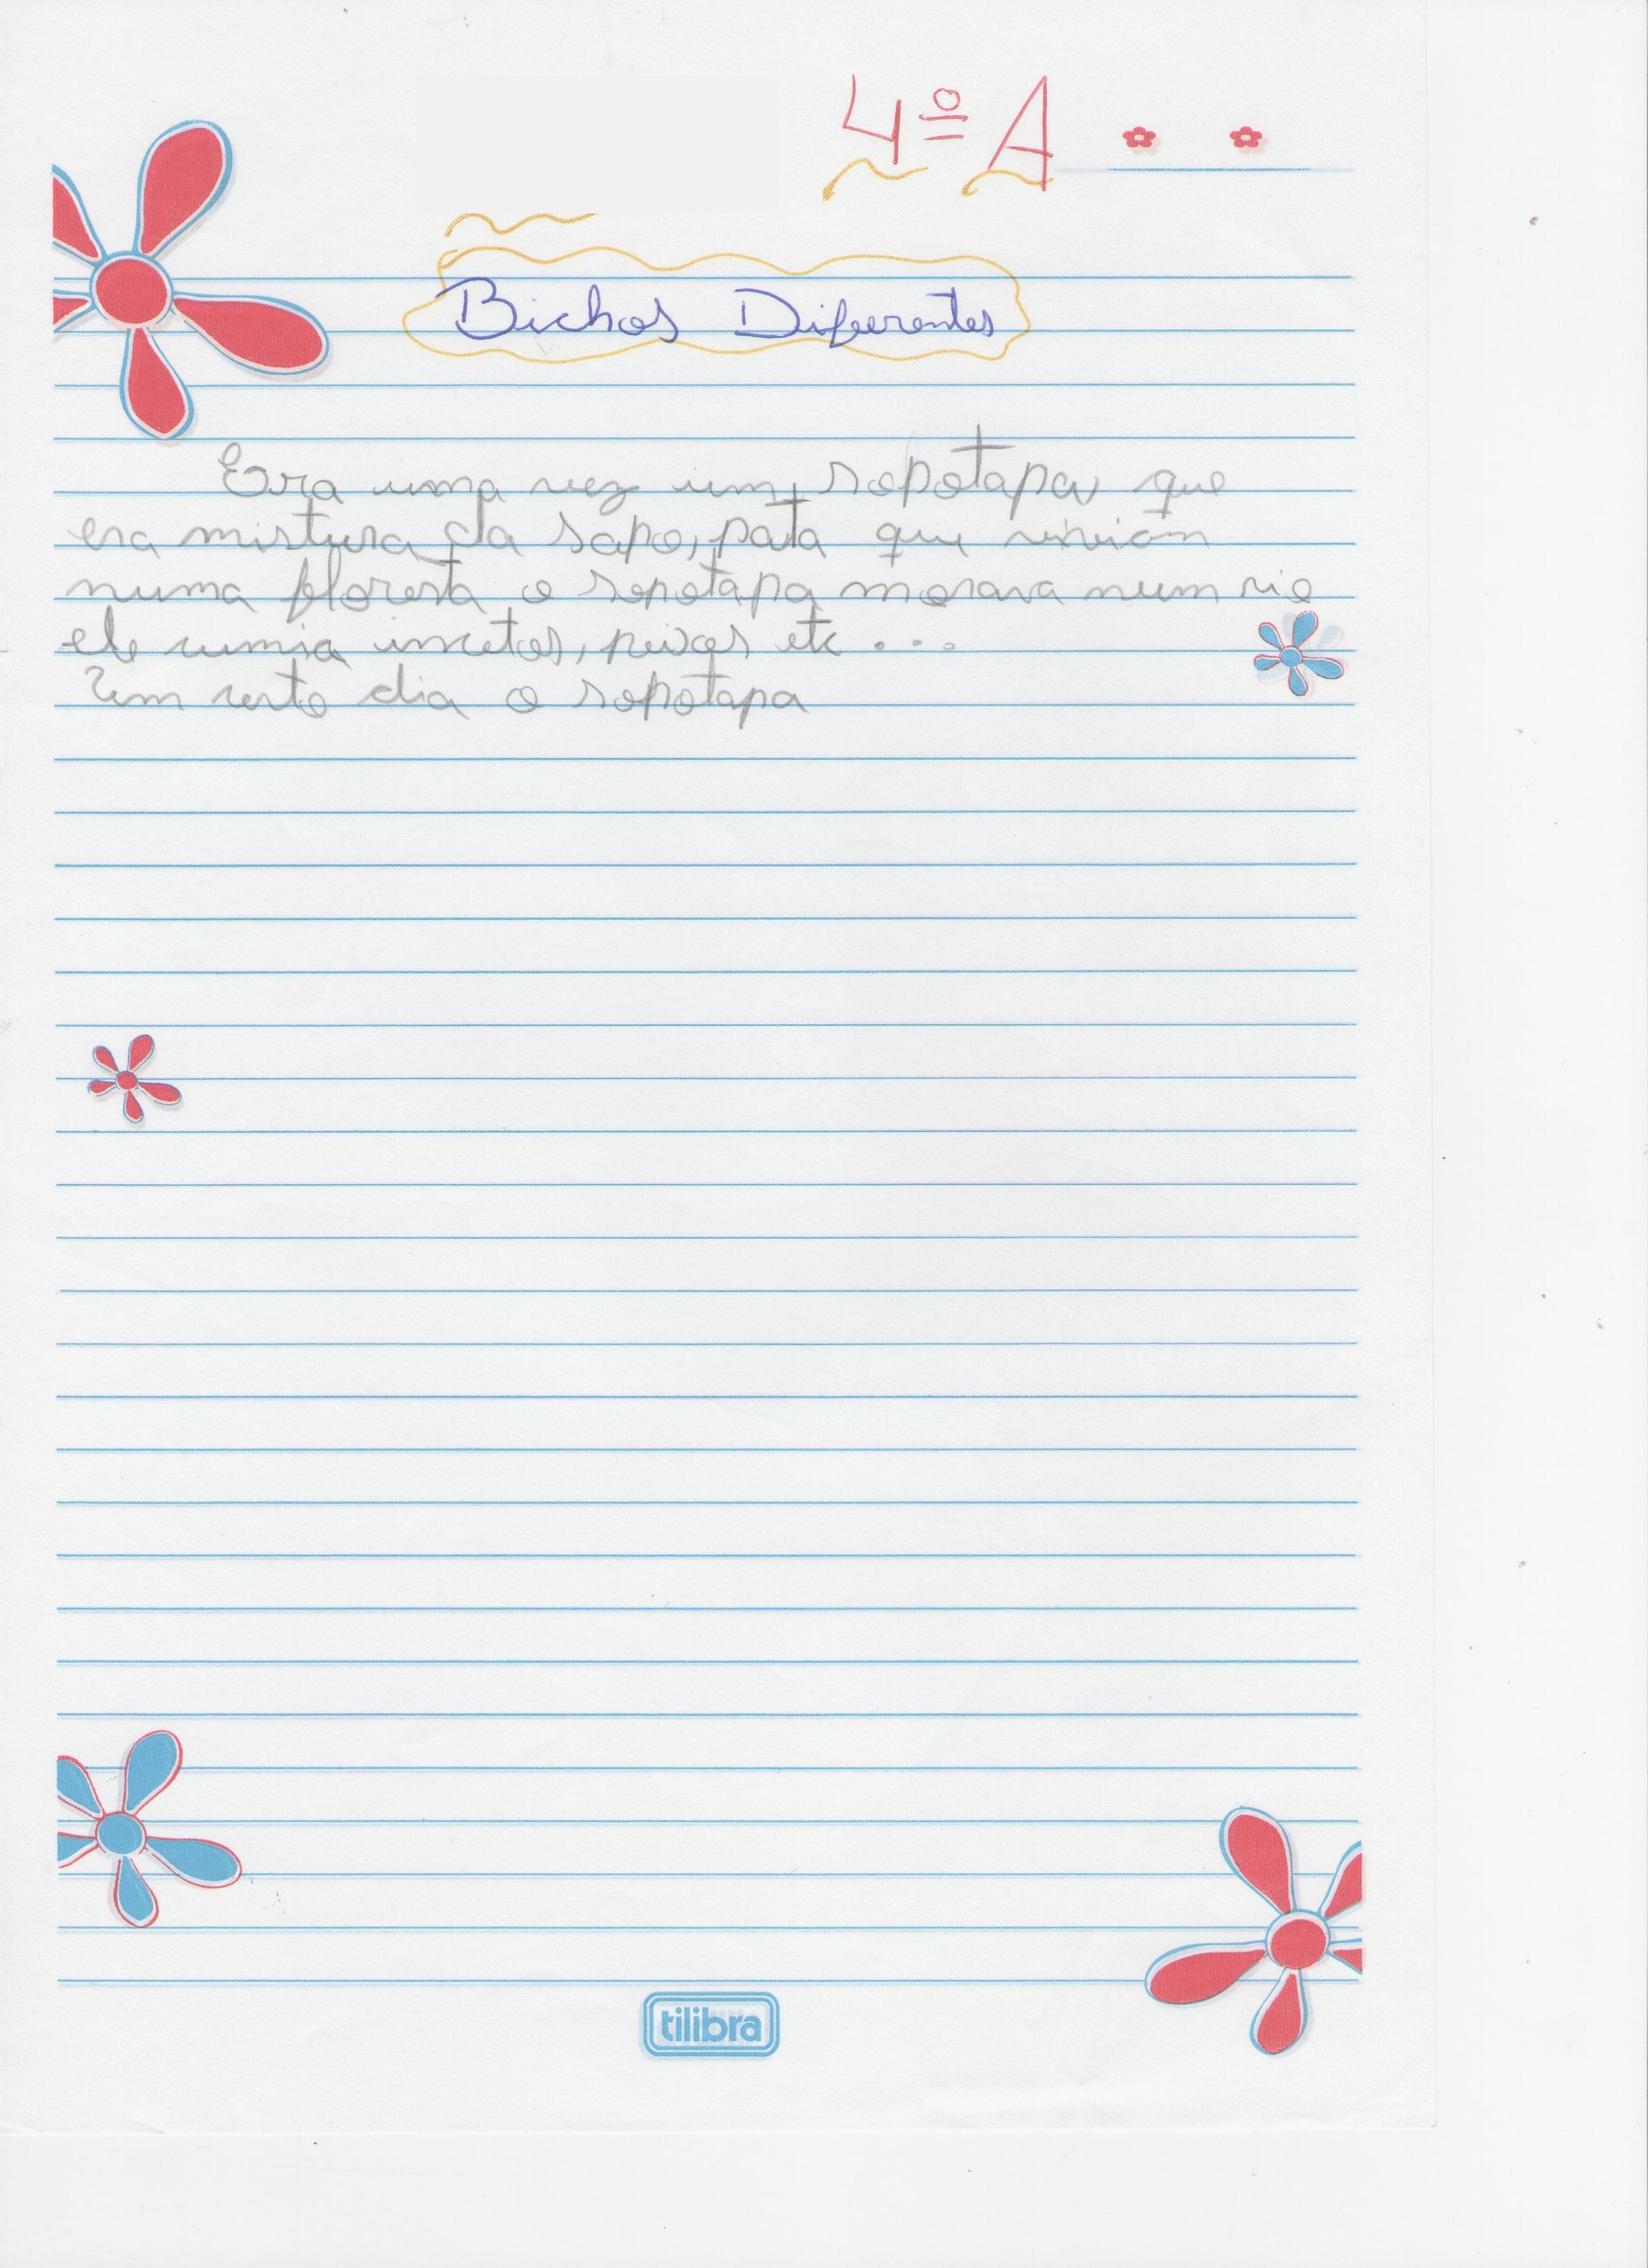 4º A
Bichos Diferentes
Era uma vez um sopotapa, que
era mistura da sapo, pata que viviam
numa floresta o sopotapa morava num rio
ele cumia incetos, peixes etc...
Um certo dia o sopotapa
tilibra